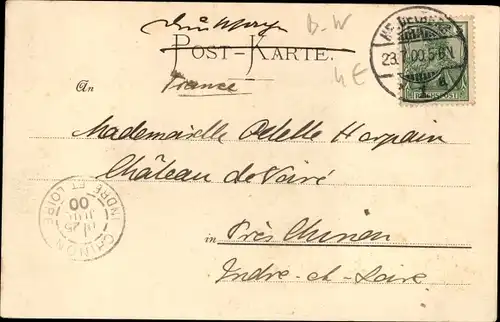 Drucksache
B-W
POST-KARTE.
4E
An
France
23.7.00.5-6N
REICHSPOST
Mademoiselle Odette Harpain
Château de Vaire
in Près Chinon
Indre-et-Loire
CHINON
INDRE ET LOIRE
25
00